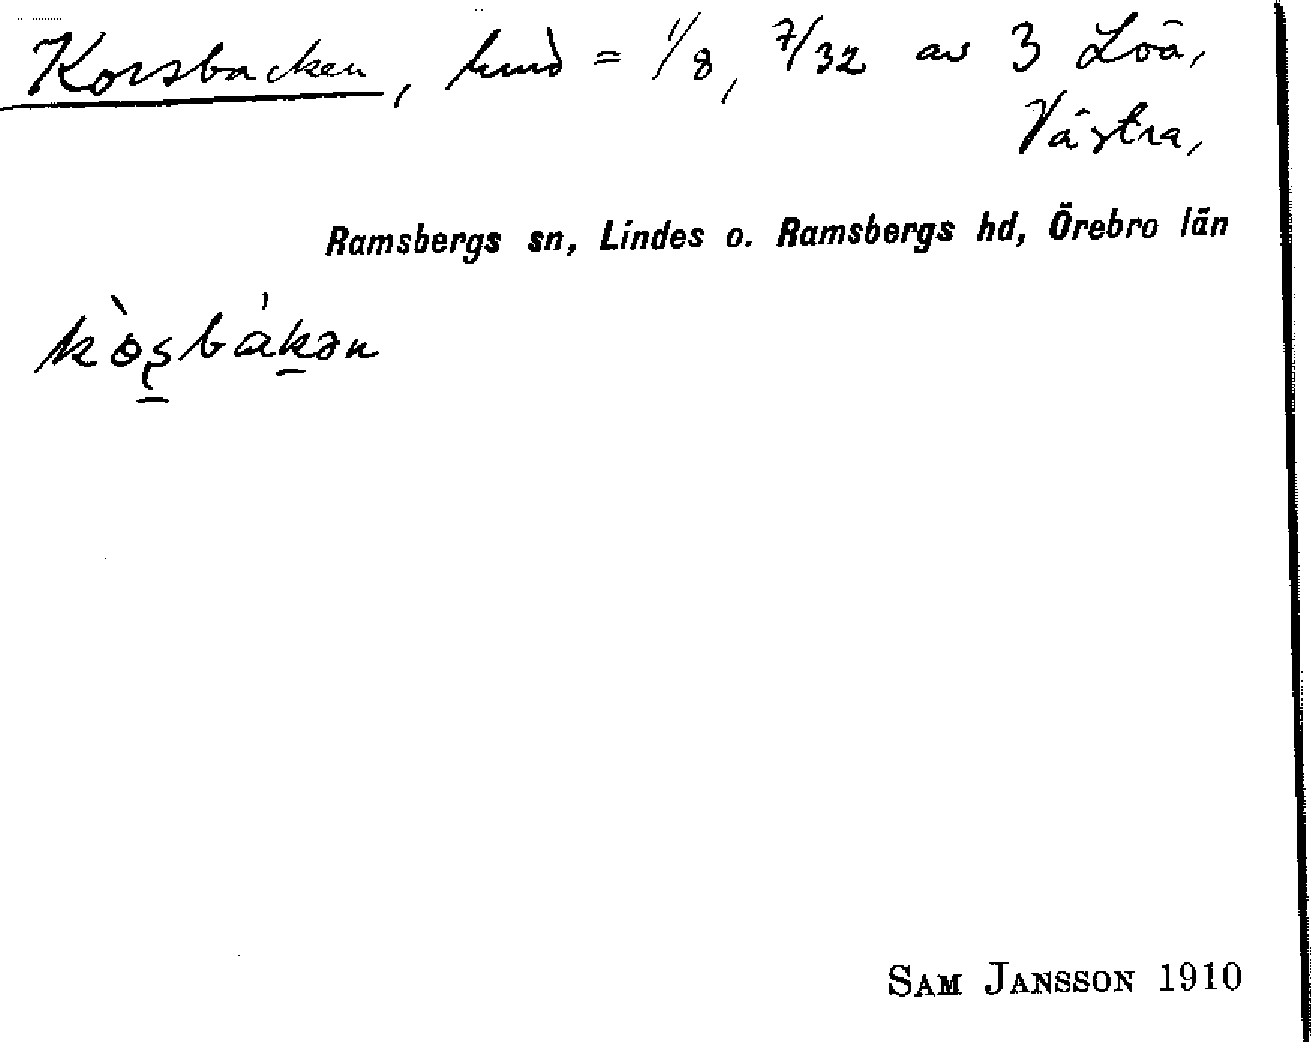 Korsbacken, hmd = 1/8, 7/32 av 3 Löa,
Västra,
Ramsbergs sn, Lindes o. Ramsbergs hd, Örebro län
SAM JANSSON 1910